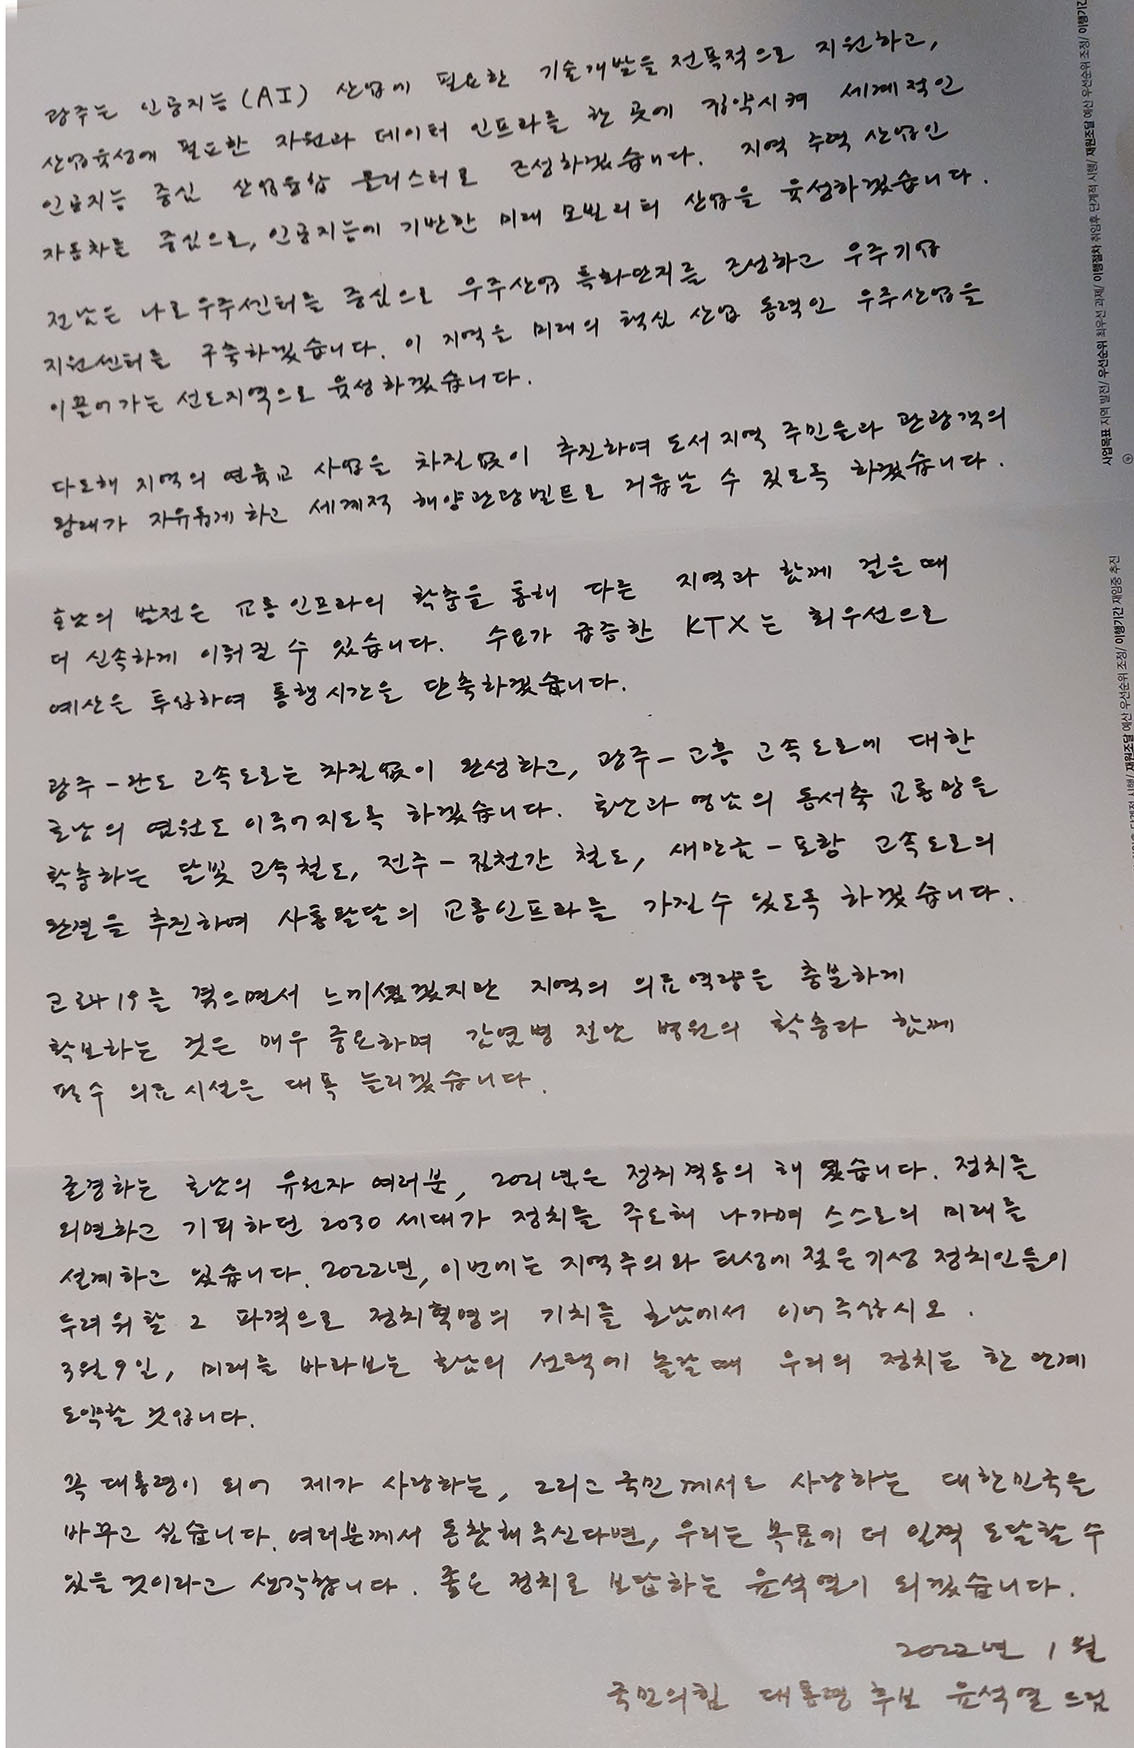 광주는 인공지능(AI) 산업에 필요한 기술개발을 전폭적으로 지원하고,
산업육성에 필요한 자원과 데이터 인프라를 한 곳에 집약시켜 세계적인
인공지능 중심 산업융합 클러스터로 조성하겠습니다. 지역 주력 산업인
자동차를 중심으로, 인공지능에 기반한 미래 모빌리티 산업을 육성하겠습니다.
전남은 나로우주센터를 중심으로 우주산업 특화단지를 조성하고 우주기업
지원센터를 구축하겠습니다. 이 지역을 미래의 핵심 산업 동력인 우주산업을
이끌어가는 선도지역으로 육성하겠습니다.
다도해 지역의 연륙교 사업을 차질없이 추진하여 도서지역 주민들과 관광객의
왕래가 자유롭게 하고 세계적 해양관광벨트로 거듭날 수 있도록 하겠습니다.
호남의 발전은 교통인프라의 확충을 통해 다른 지역과 함께 걸을때
더 신속하게 이뤄질 수 있습니다. 수요가 급증한 KTX는 최우선으로
예산을 투입하여 통행시간을 단축하겠습니다.
광주-완도 고속도로는 차질없이 완성하고, 광주-고흥 고속도로에 대한
호남의 염원도 이루어지도록 하겠습니다. 호남과 영남의 동서축 교통망을
확충하는 달빛 고속철도, 전주-김천간 철도, 새만금-포항 고속도로의
완결을 추진하여 사통팔달의 교통인프라를 가질 수 있도록 하겠습니다.
코로나19를 겪으면서 느끼셨겠지만 지역의 의료역량을 충분하게
확보하는 것은 매우 중요하며 감염병 전담 병원의 확충과 함께
필수 의료시설을 대폭 늘리겠습니다.
존경하는 호남의 유권자 여러분, 2021년은 정치격동의 해 였습니다. 정치를
외면하고 기피하던 2030세대가 정치를 주도해 나가며 스스로의 미래를
설계하고 있습니다. 2022년, 이번에는 지역주의와 타성에 젖은 기성 정치인들이
두려워할 그 파격으로 정치혁명의 기치를 호남에서 이어주십시오.
3월 9일, 미래를 바라보는 호남의 선택에 놀랄때 우리의 정치는 한 단계
도약할 것입니다.
꼭 대통령이 되어 제가 사랑하는, 그리고 국민께서도 사랑하는 대한민국을
바꾸고 싶습니다. 여러분께서 동참해주신다면, 우리는 목표에 더 일찍 도달할 수
있을 것이라고 생각합니다. 좋은 정치로 보답하는 윤석열이 되겠습니다.
2022년 1월
국민의힘 대통령 후보 윤석열 드림
사업목표 지역 발전/ 우선순위 최우선 과제/ 이행절차 취임후 단계적 시행/ 재원조달 예산 우선순위 조정/ 이행기간
재원조달 예산 우선순위 조정/ 이행기간 재임중 추진